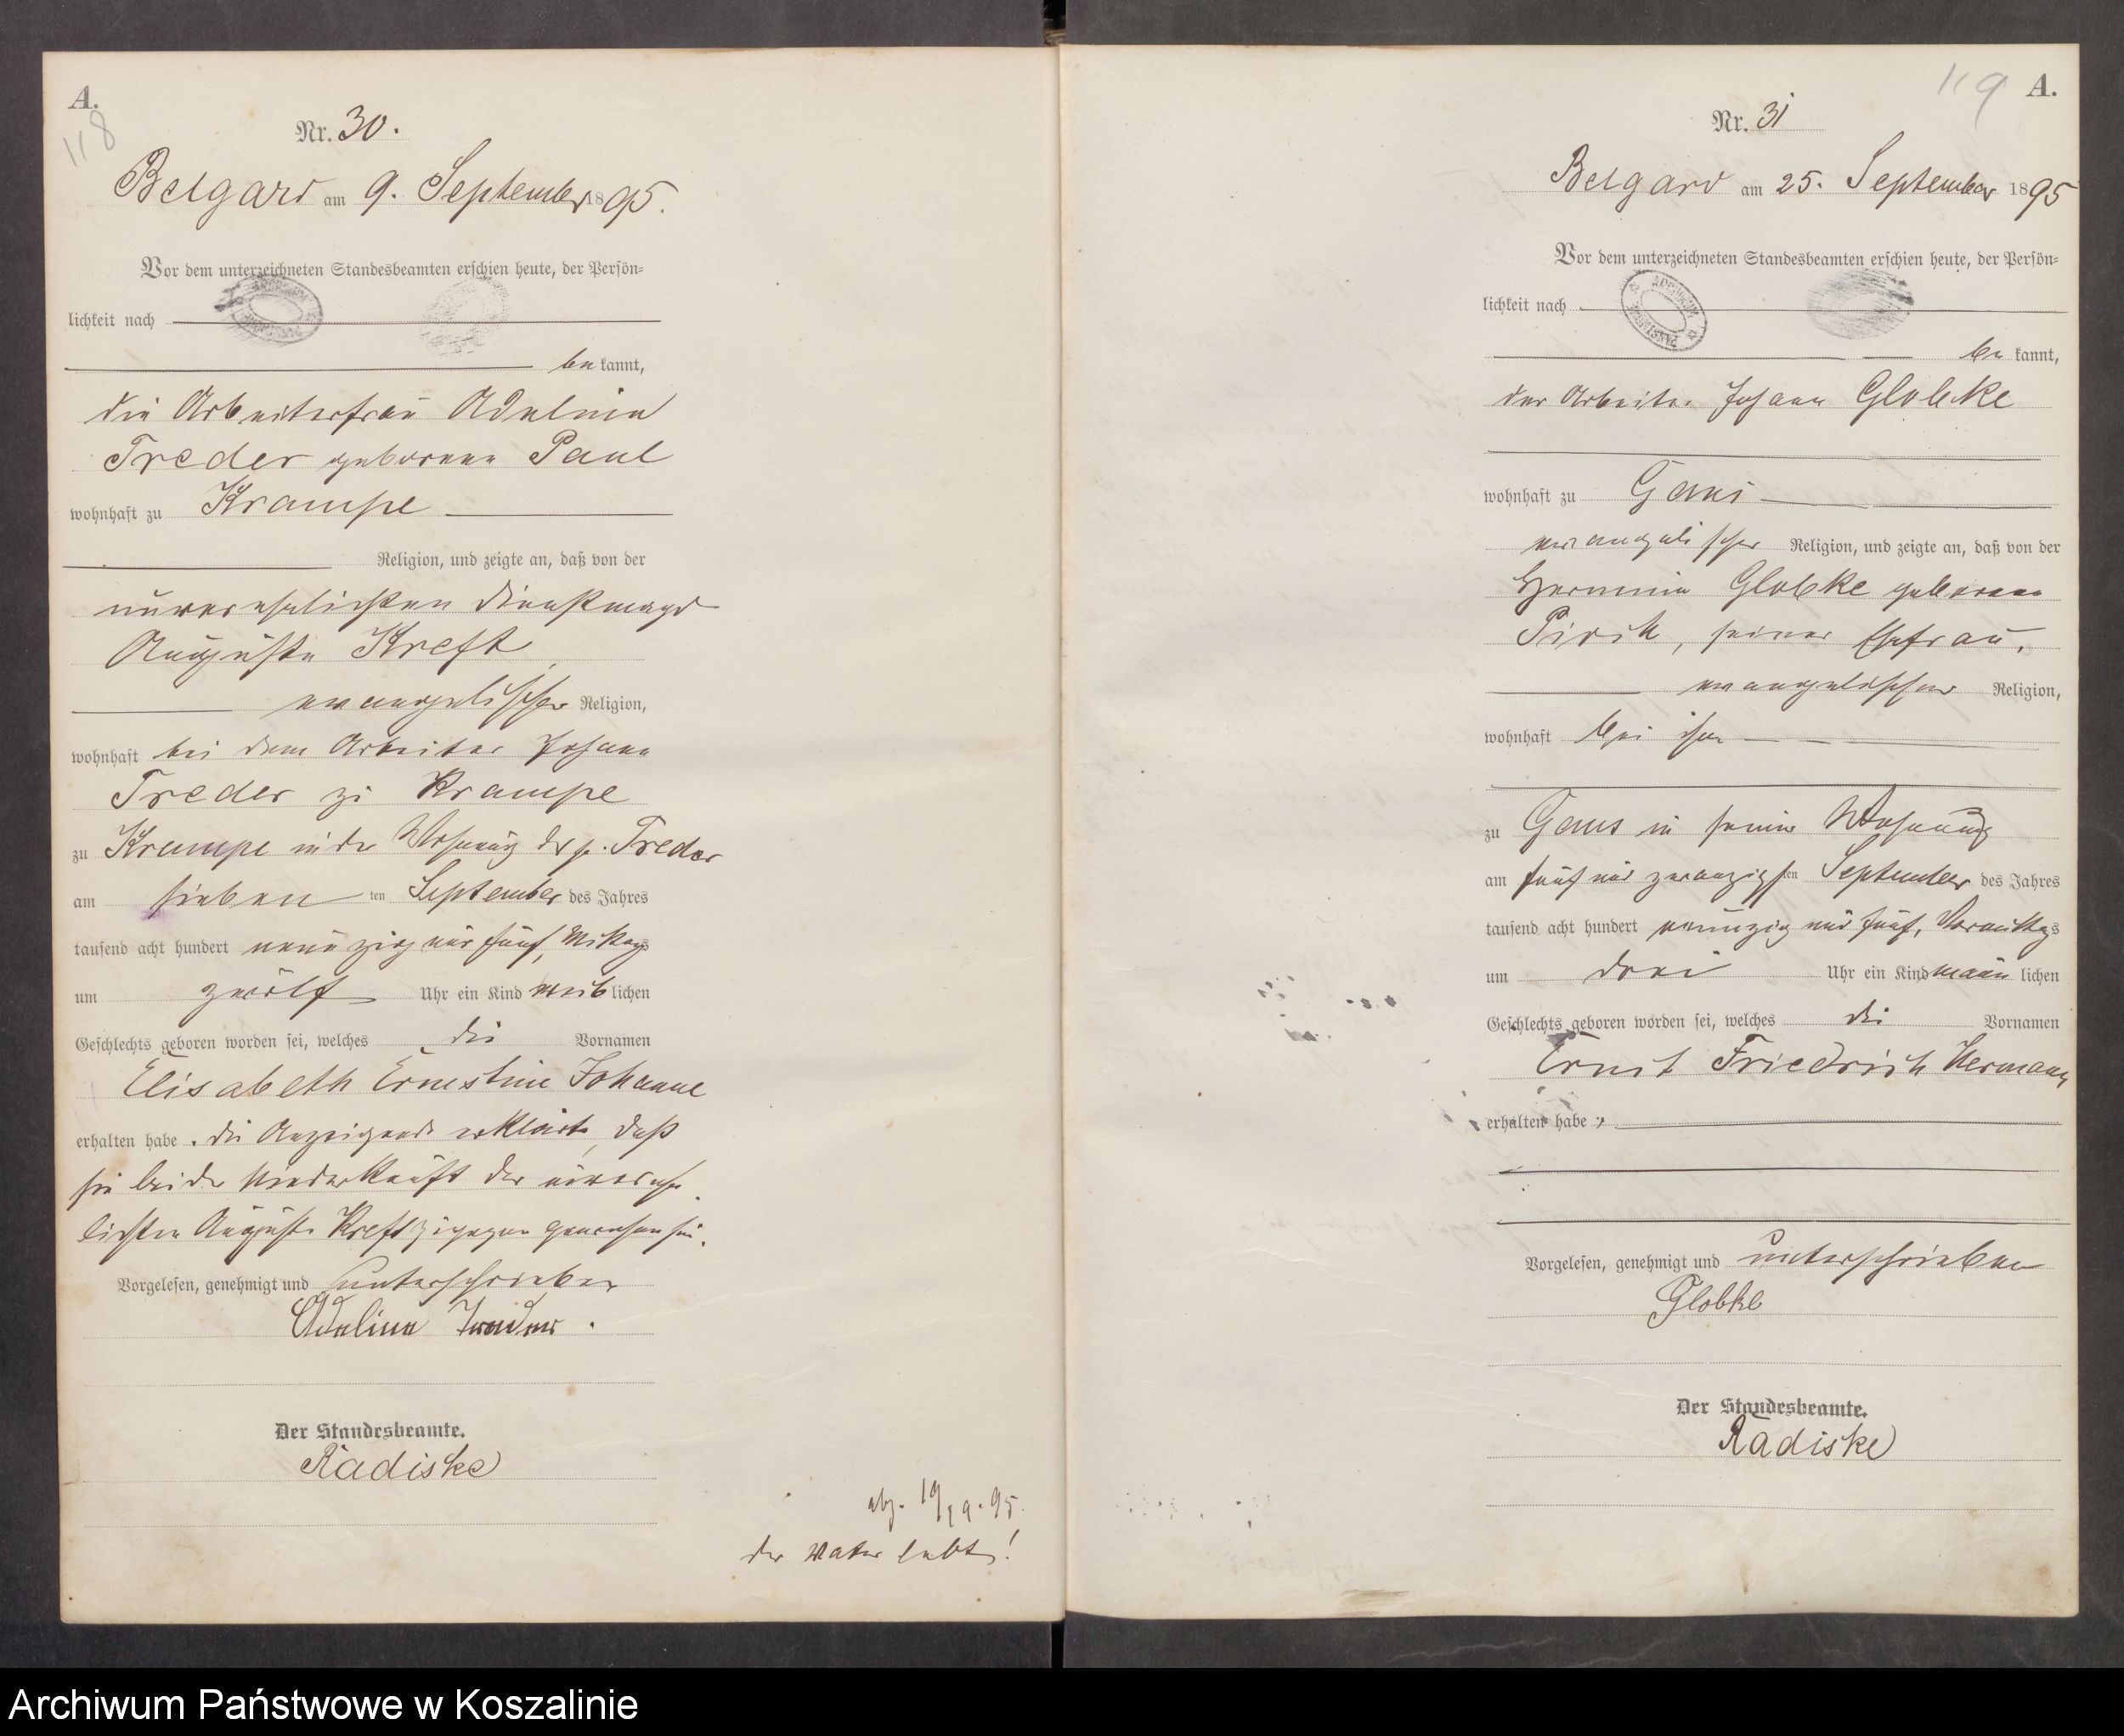 A.
118
Nr. 30.
Belgard am 9. September 1895.
Vor dem unterzeichneten Standesbeamten erschien heute, der Persön-
lichkeit nach
be kannt,
die Arbeiterfrau Adeline
Treder geborene Paul
wohnhaft zu Krampe
Religion, und zeigte an, daß von der
unverehelichten Dienstmagd
Auguste Kreft,
evangelischer Religion,
wohnhaft bei dem Arbeiter Johann
Treder zu Krampe
zu Krampe in der Wohnung der p. Treder
am sieben ten September des Jahres
tausend acht hundert neunzig und fünf, Mittags
um zwölf Uhr ein Kind weib lichen
Geschlechts geboren worden sei, welches die Vornamen
Elisabeth Ernestine Johanne
erhalten habe. Die Anzeigende erklärte, daß
sie bei der Niederkunft der unverehe
lichten Auguste Kreft zugegen gewesen sei.
Vorgelesen, genehmigt und unterschrieben
Adeline Treder.
Der Standesbeamte.
Radiske
19/9. 95.
der Vater lebt!
119
A.
Nr. 31
Belgard am 25. September 1895
Vor dem unterzeichneten Standesbeamten erschien heute, der Persön-
lichkeit nach
be kannt,
der Arbeiter Johann Globke
wohnhaft zu Gans
evangelischer Religion, und zeigte an, daß von der
Hermine Globke geborene
seiner Ehefrau,
evangelischer Religion,
wohnhaft bei ihm
zu Gans in seiner Wohnung
am fünf und zwanzigsten September des Jahres
tausend acht hundert neunzig und fünf, Vormittags
um drei Uhr ein Kind männ lichen
Geschlechts geboren worden sei, welches die Vornamen
Ernst Friedrich Hermann
erhalten habe.
Vorgelesen, genehmigt und unterschrieben
Globke
Der Standesbeamte.
Radiske
Archiwum Państwowe w Koszalinie